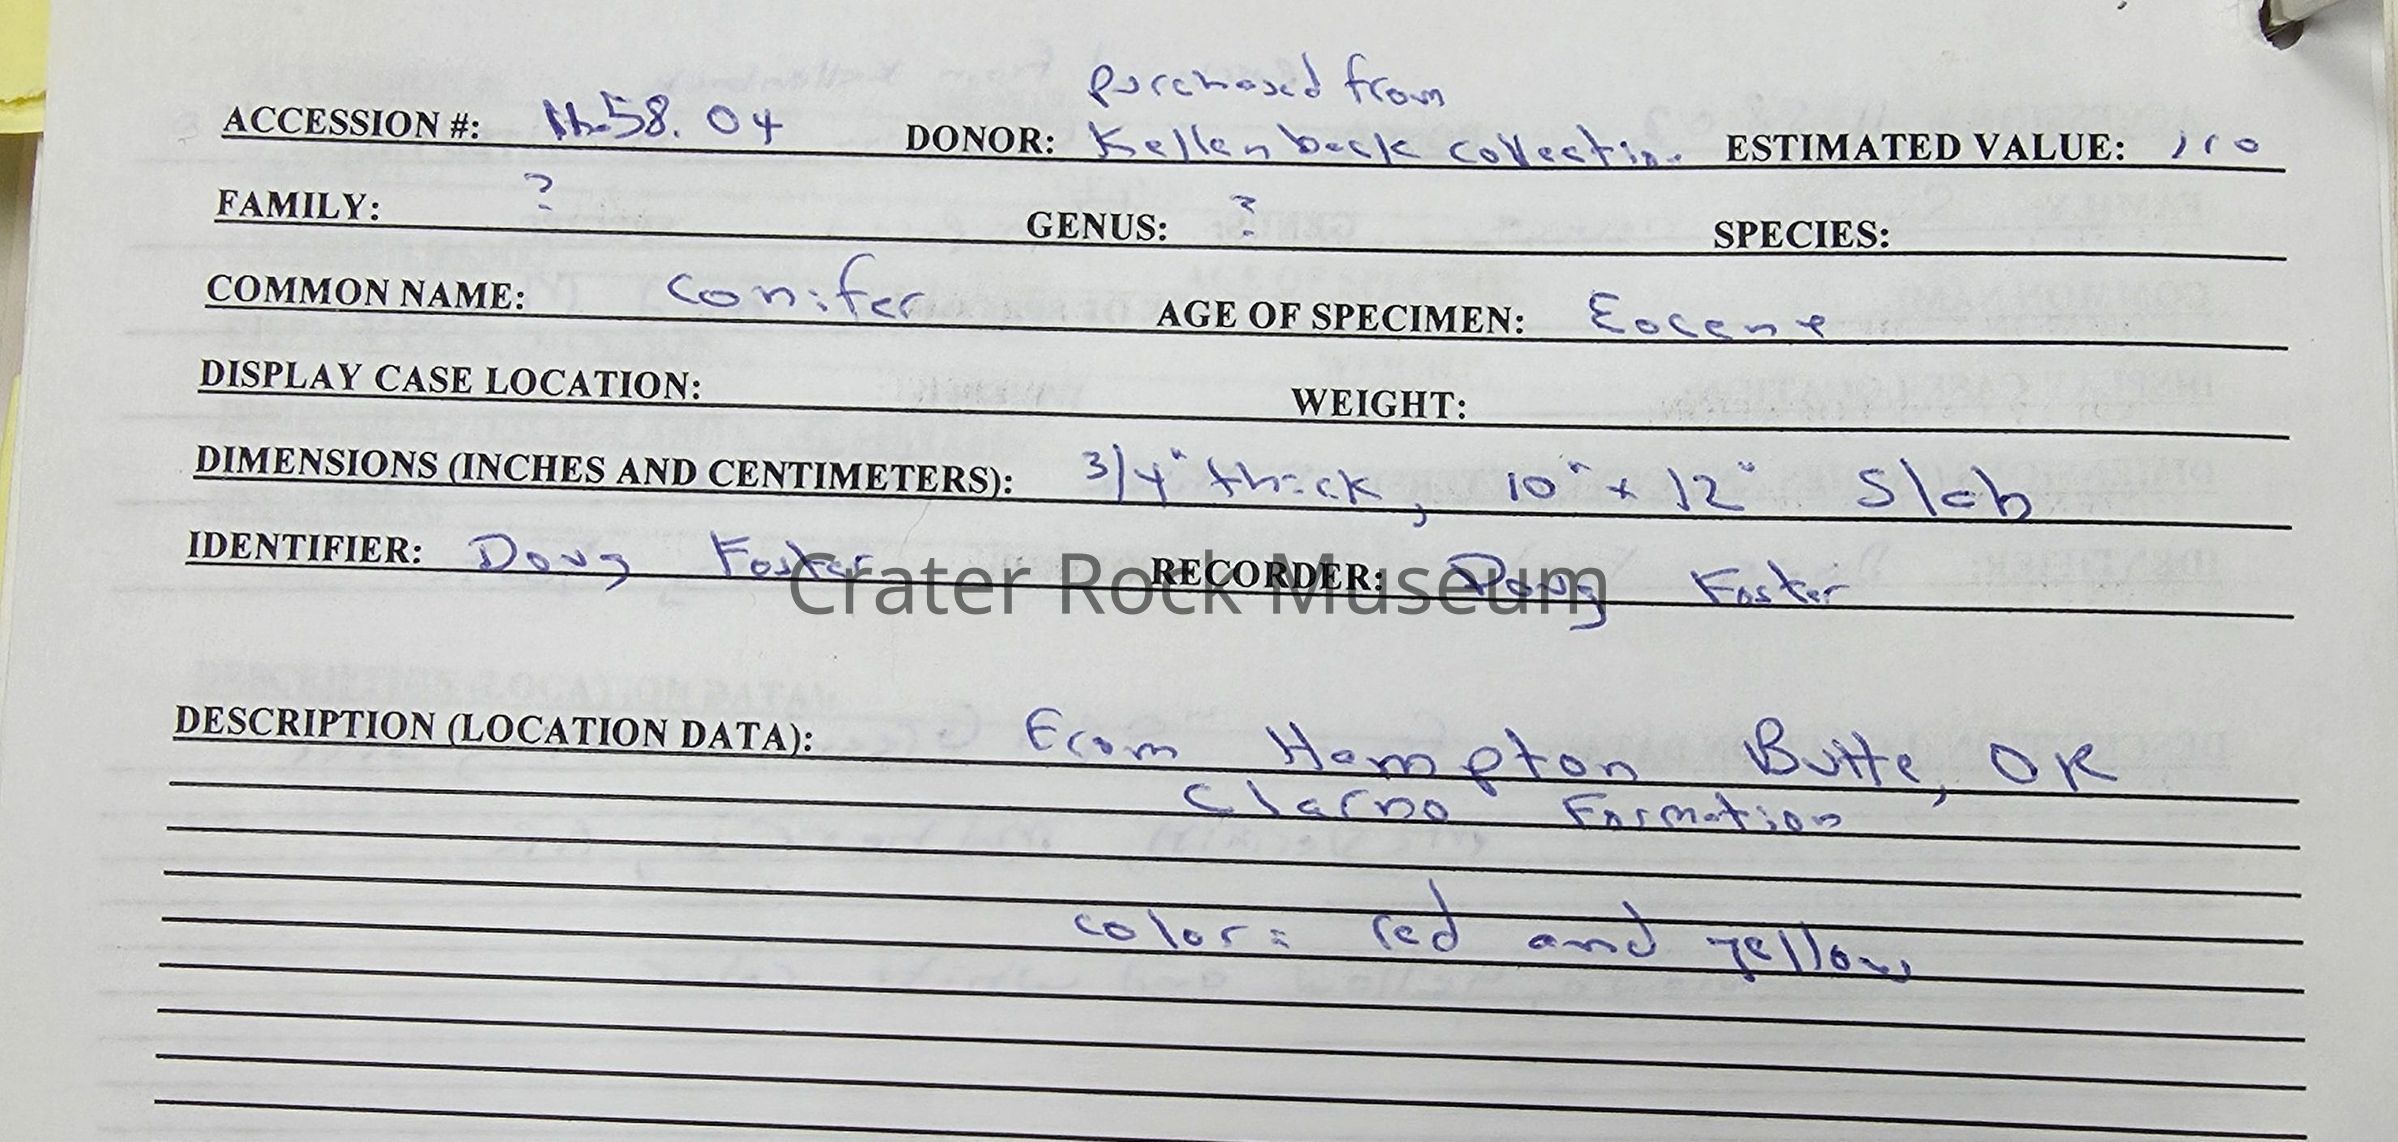 purchased from
ACCESSION #: 11.58.04 DONOR: Kellenbeck collection ESTIMATED VALUE: 110
FAMILY: ? GENUS: ? SPECIES:
COMMON NAME: conifer AGE OF SPECIMEN: Eocene
DISPLAY CASE LOCATION: WEIGHT:
DIMENSIONS (INCHES AND CENTIMETERS): 3/4" thick, 10" x 12" Slab
IDENTIFIER: Doug Foster RECORDER: Doug Foster
Crater Rock Museum
DESCRIPTION (LOCATION DATA): From Hampton Butte, OR
Clarno Formation
color: red and yellow